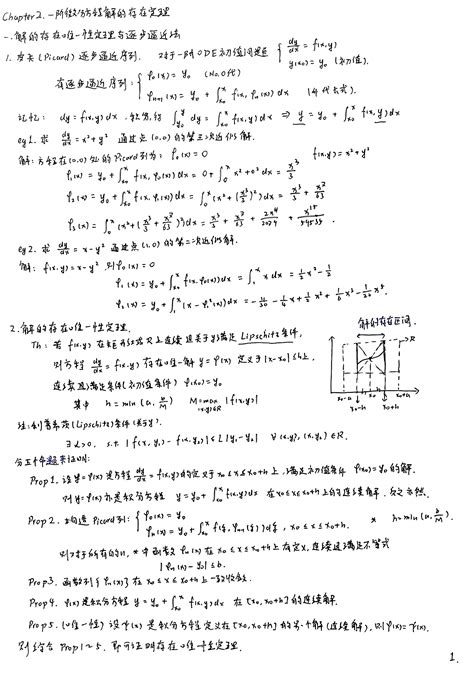 Chapter 2. 一阶微分方程解的存在定理
一. 解的存在唯一性定理与逐步逼近法
1. 皮卡(Picard)逐步逼近序列. 对于一阶ODE初值问题 { dy/dx = f(x,y)
y(x₀) = y₀ (初值).
有逐步逼近序列: { φ₀(x) = y₀ (N₀.0代)
φₙ₊₁(x) = y₀ + ∫_{x₀}^x f(x, φₙ(x)) dx
记忆: dy = f(x,y) dx. ∫_{y₀}^y dy = ∫_{x₀}^x f(x,y) dx ⇒ y = y₀ + ∫_{x₀}^x f(x,y) dx
eg1. 求 dy/dx = x²+y² 通过点(0,0)的第三次近似解.
解: 方程在(0,0)处的Picard列为: φ₀(x) = 0 f(x,y) = x²+y²
φ₁(x) = y₀ + ∫_{x₀}^x f(x, φ₀(x)) dx = 0 + ∫₀^x x²+0² dx = x³/3
φ₂(x) = y₀ + ∫_{x₀}^x f(x, φ₁(x)) dx = ∫₀^x (x² + (x³/3)²) dx = x³/3 + x⁷/63
φ₃(x) = ∫₀^x (x² + (x³/3 + x⁷/63)²) dx = x³/3 + x⁷/63 + 2x¹¹/2079 + x¹⁵/59535
eg2. 求 dy/dx = x-y² 通过点(1,0)的第二次近似解.
解: f(x,y) = x-y² 则φ₀(x) = 0
φ₁(x) = y₀ + ∫_{x₀}^x f(x, φ₀(x)) dx = ∫₁^x x dx = ½x² - ½
φ₂(x) = y₀ + ∫₁^x (x - φ₁²(x)) dx = -11/30 - ¼x + ½x² + 1/6 x³ - 1/20 x⁵.
2. 解的存在唯一性定理. 解的存在区间.
Th: 若 f(x,y) 在矩形域 R 上连续且关于y满足 Lipschitz 条件,
则方程 dy/dx = f(x,y) 存在唯一解 y = φ(x) 定义于 |x-x₀| ≤ h 上,
连续且满足条件(初值条件) φ(x₀) = y₀.
其中 h = min(a, b/M) M = max_{(x,y)∈R} |f(x,y)|
R
x₀-a x₀-h x₀+h x₀+a
注: 利普希茨(Lipschitz)条件(关于y).
∃ L>0, s.t. |f(x,y₁) - f(x,y₂)| ≤ L|y₁-y₂| ∀ (x,y₁), (x,y₂) ∈ R.
分五个命题来证明:
Prop 1. 设 y = φ(x) 是方程 dy/dx = f(x,y) 的定义于 x₀ ≤ x ≤ x₀+h 上, 满足初值条件 φ(x₀) = y₀ 的解.
则 y = φ(x) 是积分方程 y = y₀ + ∫_{x₀}^x f(x,y) dx 在 x₀ ≤ x ≤ x₀+h 上的连续解. 反之亦然.
Prop 2. 构造 Picard列: { φ₀(x) = y₀
φₙ(x) = y₀ + ∫_{x₀}^x f(ξ, φₙ₋₁(ξ)) dξ, x₀ ≤ x ≤ x₀+h. * h = min(a, b/M).
则对于所有的n, * 中函数 φₙ(x) 在 x₀ ≤ x ≤ x₀+h 上有定义, 连续且满足不等式
|φₙ(x) - y₀| ≤ b.
Prop 3. 函数列 {φₙ(x)} 在 x₀ ≤ x ≤ x₀+h 上一致收敛.
Prop 4. φ(x) 是积分方程 y = y₀ + ∫_{x₀}^x f(x,y) dx 在 [x₀, x₀+h] 的连续解.
Prop 5. (唯一性) 设 ψ(x) 是积分方程定义在 [x₀, x₀+h] 的另一个解 (连续解), 则 φ(x) = ψ(x).
则综合 Prop 1~5. 即可证明存在唯一性定理.
1.